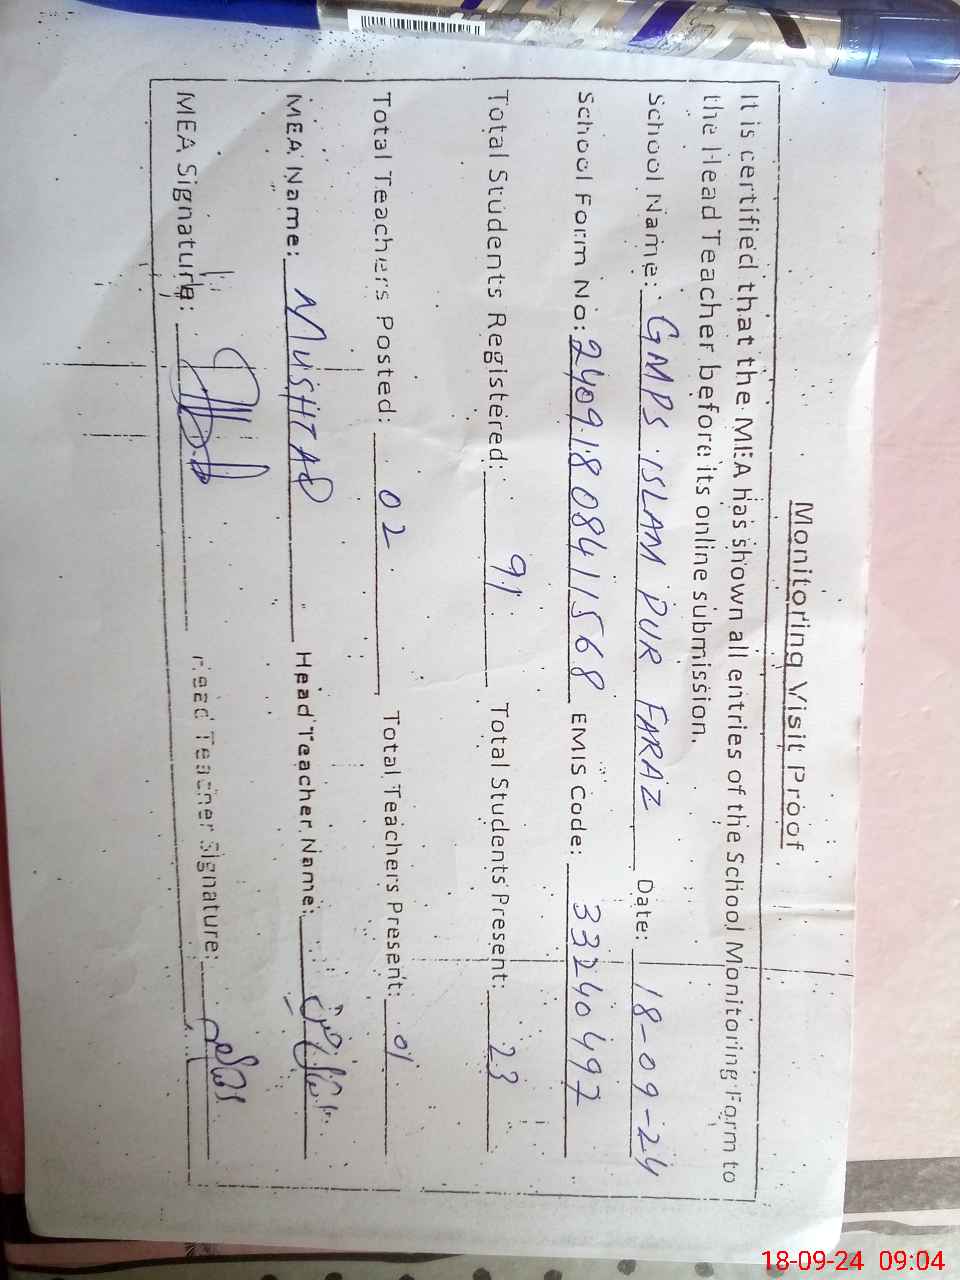 Monitoring Visit Proof
It is certified that the MEA has shown all entries of the School Monitoring Form to
the Head Teacher before its online submission.
School Name: GMPS ISLAM PUR FARAZ Date: 18-09-24
School Form No: 24091808411568 EMIS Code: 33240497
Total Students Registered: 91 Total Students Present: 23
Total Teachers Posted: 02 Total Teachers Present: 01
MEA Name: MUSHTAQ Head Teacher Name:
MEA Signature: Head Teacher Signature:
18-09-24 09:04